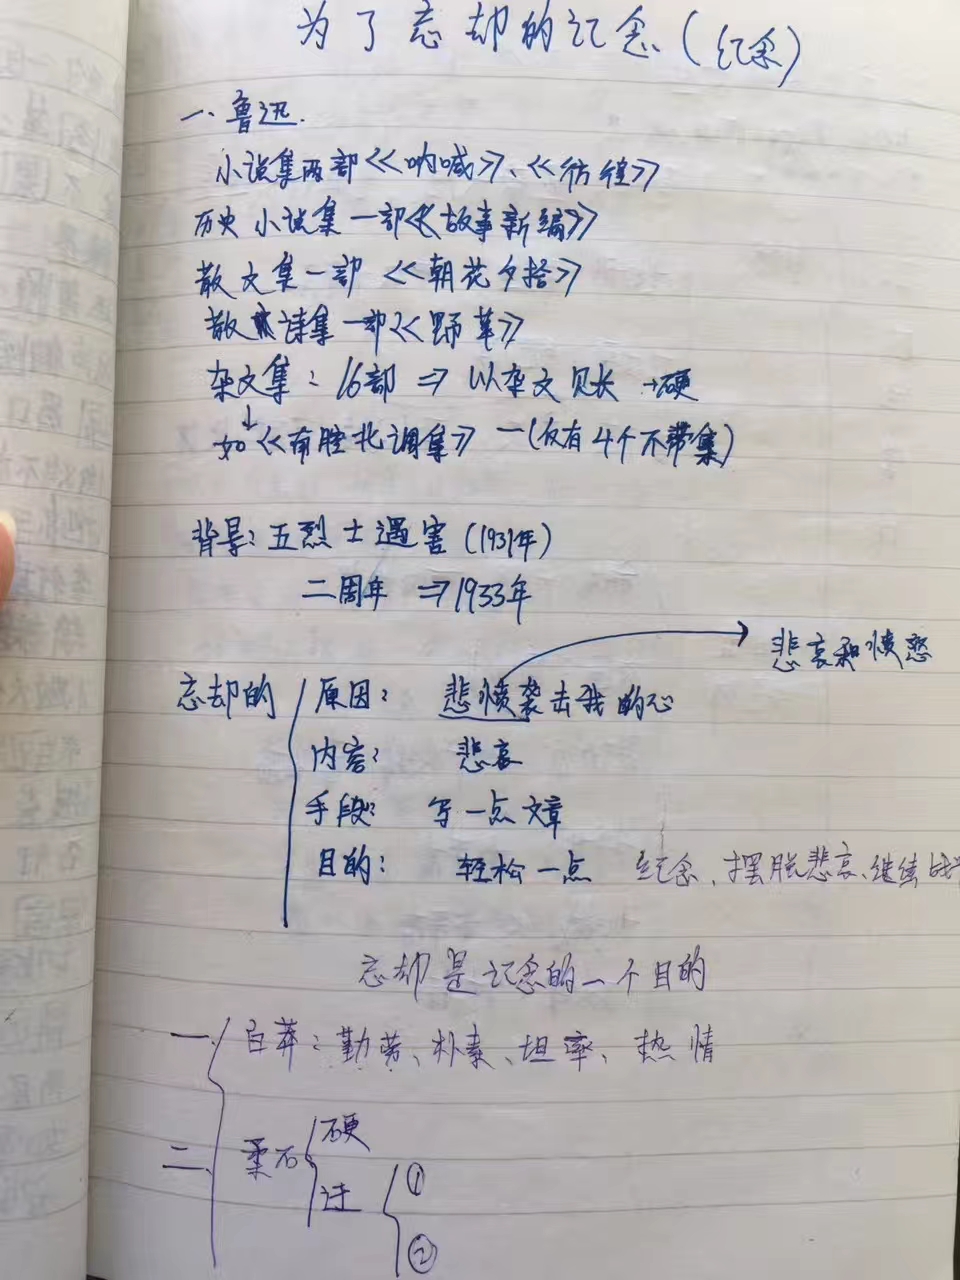 为了忘却的记念(纪念)
一、鲁迅.
小说集两部<<呐喊>>、<<彷徨>>
历史小说集一部<<故事新编>>
散文集一部<<朝花夕拾>>
散文诗集一部<<野草>>
杂文集:16部⇒以杂文见长→硬
↓
如<<南腔北调集>>—(仅有4个不带集)
背景:五烈士遇害(1931年)
二周年⇒1933年
悲哀和愤怒
忘却的
原因: 悲愤袭击我的心
内容: 悲哀
手段: 写一点文章
目的: 轻松一点 纪念、摆脱悲哀、继续战
忘却是记念的一个目的
一、白莽:勤劳、朴素、坦率、热情
二、柔石
硬
迂
①
②